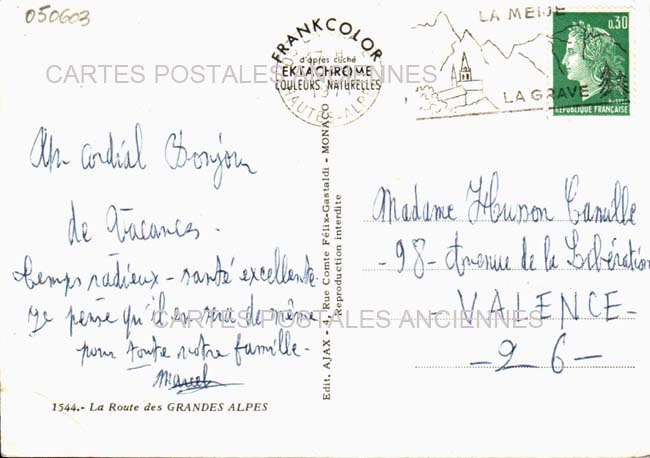 050603
FRANKCOLOR
d'après cliché
EKTACHROME
COULEURS NATURELLES
HAUTES-ALPES
LA MEIJE
LA GRAVE
0,30
REPUBLIQUE FRANÇAISE
CARTES POSTALES ANCIENNES
Un cordial Bonjour
de Vacances.
Temps radieux - santé excellente.
Je pense qu'il en sera de même
pour toute votre famille.
Marcel
1544.- La Route des GRANDES ALPES
Edit. AJAX - 4, Rue Comte Félix-Gastaldi - MONACO
Reproduction interdite
Madame Husson Camille
- 98 - Avenue de la Libération
- VALENCE -
- 26 -
CARTES POSTALES ANCIENNES